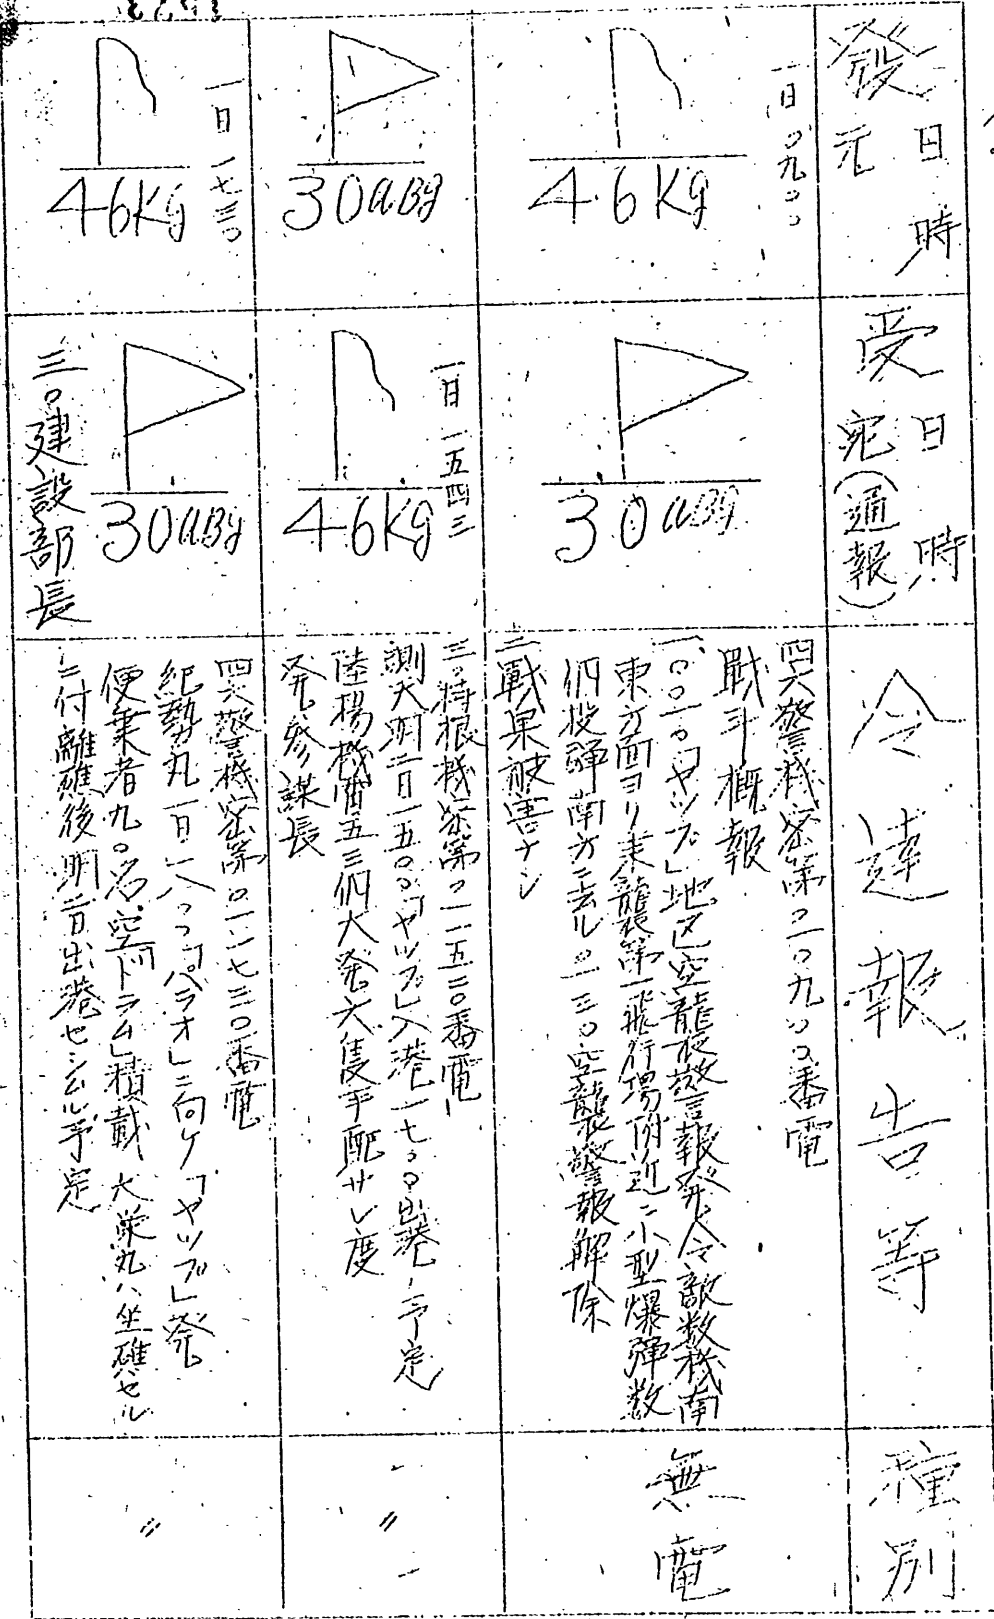 發元
日時
受宛(通報)
日時
令達報告等
種別
一日〇九〇〇
46Kg
30aBg
四六警機密第〇一〇九〇〇番電
戰斗概報
一、〇〇一〇「ヤップ」地区空襲警報発令敵数機南
東方面ヨリ来襲第一飛行場附近ニ小型爆弾数
個投弾南方ニ去ル〇一三〇空襲警報解除
二戰果被害ナシ
無電
30aBg
一日一五四三
46Kg
三〇特根機密第〇一一五二〇番電
測天明二日一五〇〇「ヤップ」入港一七〇〇出港ノ予定
陸揚機雷五三個大発六隻手配サレ度
発参謀長
〃
一日一七三〇
46Kg
30aBg
三〇建設部長
四六警機密第〇一一七三〇番電
紀勢丸一日一八〇〇「パラオ」ニ向ケ「ヤップ」発
便乗者九〇名空「ドラム」積載大栄丸ハ坐礁セル
ニ付離礁後明二日出港セシムル予定
〃